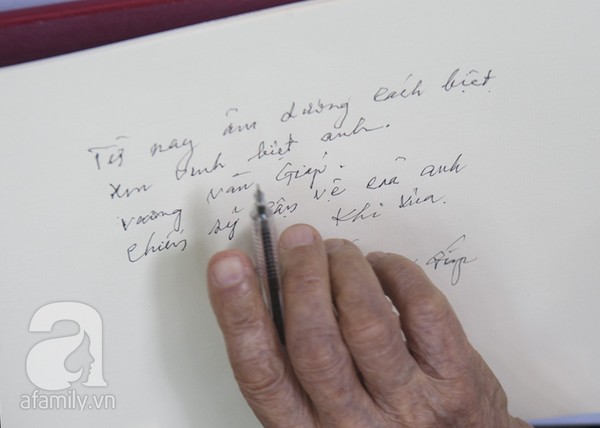 Từ nay âm dương cách biệt
Xin vĩnh biệt anh.
Vương Văn Giáp.
chiến sỹ cận vệ của anh
khi xưa.
Giáp
a
afamily.vn